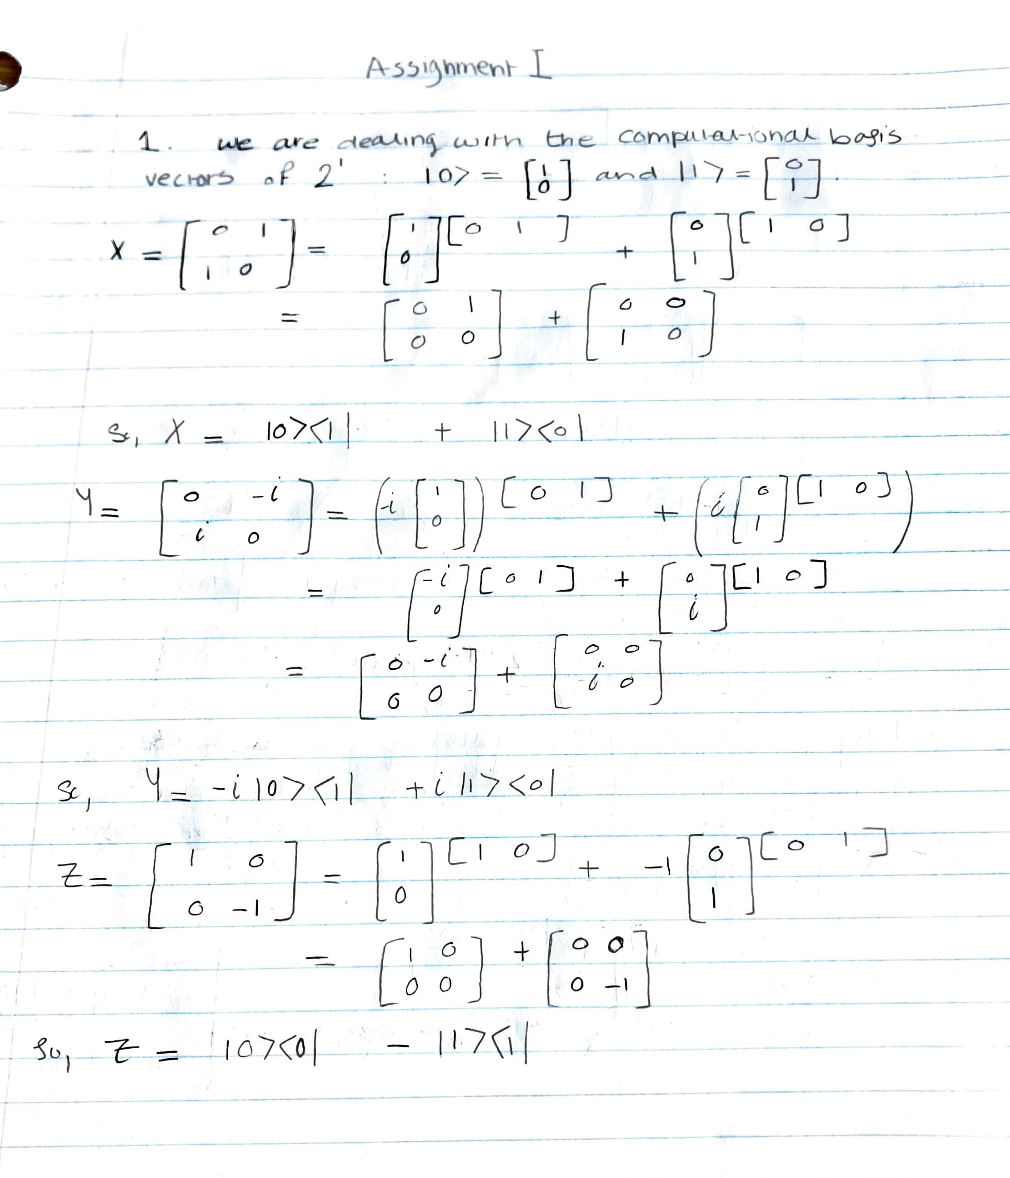 Assignment I
1. we are dealing with the computational basis
vectors of 2¹ : |0> = [1 0] and |1> = [0 1].
X = [0 1 1 0] = [1 0][0 1] + [0 1][1 0]
= [0 1 0 0] + [0 0 1 0]
So, X = |0><1| + |1><0|
Y = [0 -i i 0] = (-i [1 0]) [0 1] + (i [0 1][1 0])
= [-i 0][0 1] + [0 i][1 0]
= [0 -i 0 0] + [0 0 i 0]
So, Y = -i |0><1| + i |1><0|
Z = [1 0 0 -1] = [1 0][1 0] + -1 [0 1][0 1]
= [1 0 0 0] + [0 0 0 -1]
So, Z = |0><0| - |1><1|